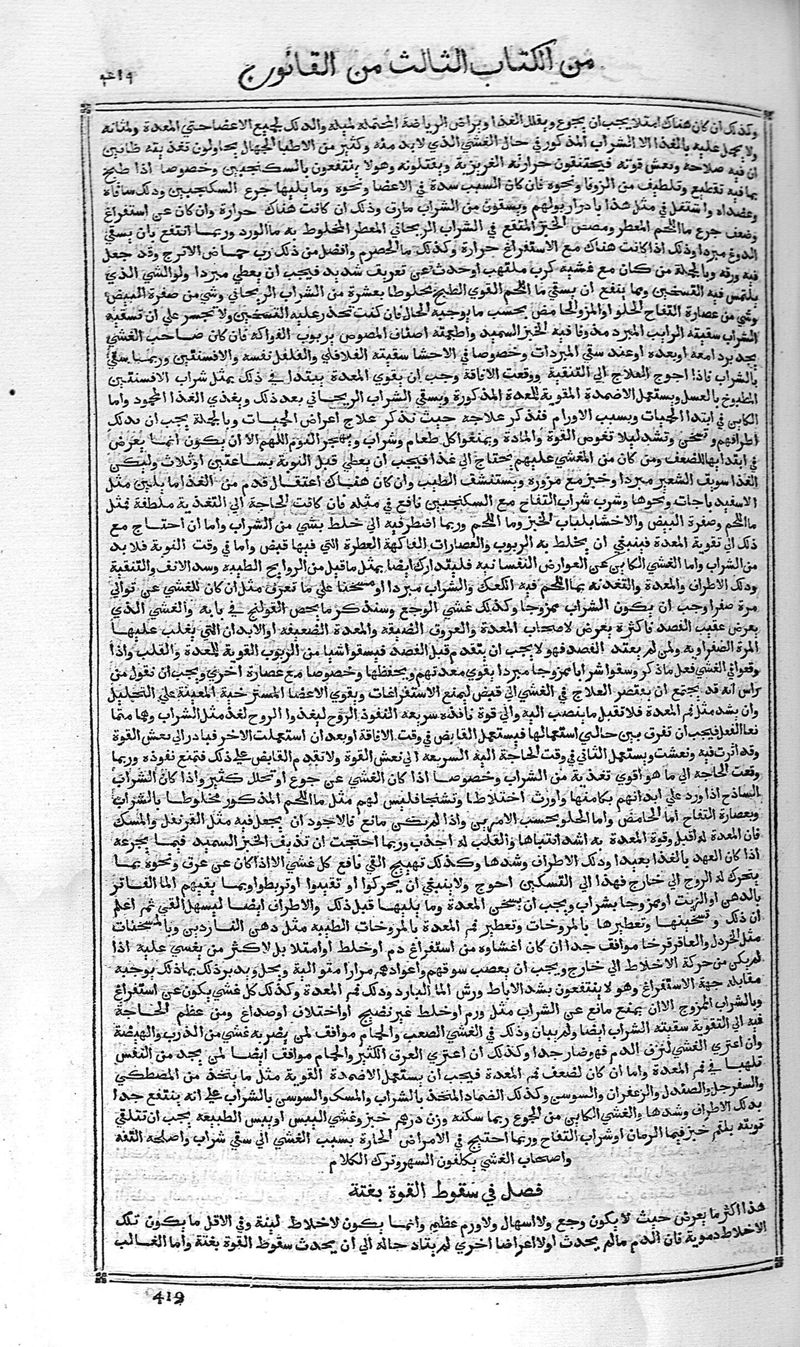 من الكتاب الثالث من القانون ٤١٩
وكذلك ان كان هناك امتلا يجب ان يجوع ويقلل الغذا ويراض الرياضة المحتملة لمثله والدلك لجميع الاعضا حتي المعدة ومثانه
ولا يحمل عليه بالغذا الا الشراب المذكور في حال الغشي الذي لابد منه وكثير من الاطبا الجهال يحاولون تغذيته ظانين
ان فيه صلاحه ونعش قوته فيختنقون حرارته الغريزية ويقتلونه وهولا ينتفعون بالسكنجبين وخصوصا اذا طبخ
بما فيه تقطيع وتلطيف من الزوفا ونحوه فان كان السبب سدة في الاعضا ونحوه وما يليها جرع السكنجبين ودلك ساقاه
وعضداه واشتغل في مثل هذا بادرار بولهم ويسقون من الشراب مارق وذلك ان كانت هناك حرارة وان كان عن استفراغ
وضعف جرع ما اللحم المعطر ومصص الخبز المنقع في الشراب الريحاني المعطر المخلوط به ما الورد وربما انتفع بان يسقي
الدوغ مبردا وذلك اذا كانت هناك مع الاستفراغ حرارة وكذلك ما الحصرم وافضل من ذلك رب حماض الاترج وقد جعل
فيه ورقه وبالجملة من كان مع غشيه كرب ملتهب او حدث عن تعريق شديد فيجب ان يعطي مبردا ولو الشي الذي
يلتمس فيه التسخين ومما ينفع ان يسقي ما اللحم القوي الطبخ مخلوطا بعشرة من الشراب الريحاني وشي من صفرة البيض
وشي من عصارة التفاح الحلو او المز والحامض بحسب ما يوجبه الحال فان كنت تحذر عليه التسخين ولا تجسر علي ان تسقيه
الشراب سقيته الرايب المبرد مدوفا فيه الخبز السميد واطعمته اصناف المصوص بربوب الفواكه فان كان صاحب الغشي
يجد بردا معه او بعده او عند سقي المبردات وخصوصا في الاحشا سقيته الفلافلي والفلفل نفسه والافسنتين وربما سقي
بالشراب فاذا احوج العلاج الي التنقية ووقعت الافاقة وجب ان يقوي المعدة يبتدا في ذلك بمثل شراب الافسنتين
المطبوخ بالعسل ويستعمل الاضمدة المقوية للمعدة المذكورة ويسقي الشراب الريحاني بعد ذلك ويغذي الغذا المحمود واما
الكاين في ابتدا الحميات وبسبب الاورام فنذكر علاجه حيث نذكر علاج اعراض الحميات وبالجملة يجب ان يدلك
اطرافهم وتسخن وتشد ليلا تغوص القوة والمادة ويمنعوا كل طعام وشراب ويهجر النوم اللهم الا ان يكون انما يعرض
في ابتدايها للضعف ومن كان من المغشي عليهم يحتاج الي غذا فيجب ان يعطي قبل النوبة بساعتين او ثلاث وليكن
الغذا سويق الشعير مبردا وخبز مع مزوره ويستنشق الطيب وان كان هناك اعتقال قدم من الغذا ما يلين مثل
الاسفيدباجات ونحوها وشرب شراب التفاح مع السكنجبين نافع في مثله فان كانت الحاجة الي التغذية ملطفة فمثل
ما اللحم وصفرة البيض والاحشا بلباب الخبز وما اللحم وربما اضطر فيه الي خلط بشي من الشراب واما ان احتاج مع
ذلك الي تقوية المعدة فينبغي ان يخلط به الربوب والعصارات الفاكهة العطرة التي فيها قبض واما في وقت النوبة فلا بد
من الشراب واما الغشي الكاين عن العوارض النفسانيه فليتدارك ايضا بمثل ما قيل من الروايح الطيبه وسد الانف والتنقية
ودلك الاطراف والمعدة والتغذيه بما اللحم فيه الكعك والشراب مبردا او مسخنا علي ما تعرف مثل ان كان الغشي عن توالي
مرة صفرا وجب ان يكون الشراب ممزوجا وكذلك غشي الوجع وسنذكر ما يخص القولنج في بابه والغشي الذي
يعرض عقيب الفصد فاكثره يعرض لاصحاب المعدة والعروق الضيقة والمعدة الضعيفه والابدان التي يغلب عليها
المرة الصفراويه ولمن لم يعتد الفصد فهولا يجب ان يتقدم قبل الفصد فيسقوا شيا من الربوب القوية للمعدة والقلب واذا
وقعوا في الغشي فعل ما ذكر وسقوا شرابا ممزوجا مبردا يقوي معدتهم ويحفظها وخصوصا مع عصارة اخري ويجب ان نقول من
راس انه قد يجتمع ان يفتقر العلاج في الغشي الي قبض ليمنع الاستفراغات ويقوي الاعضا المسترخية المعينة علي التحليل
وان يشد مثل فم المعدة فلا تقبل ما ينصب اليه والي قوة نافذه سريعه النفوذ الروح ليغذوا الروح لغذ مثل الشراب وهما متما
نعا الفعل فيجب ان تفرق بين حالتي استعمالها فيستعمل القابض في وقت الافاقة او بعد ان استعملت الاخر فبادر الي نعش القوة
وقد اثرت فيه ونعشت ويستعمل الثاني في وقت الحاجة اليه السريعه الي نعش القوة ولا تقدم القابض علي ذلك فتمنع نفوذه وربما
وقعت الحاجه الي ما هو اقوي تغذية من الشراب وخصوصا اذا كان الغشي عن جوع او تحلل كثير واذا كان الشراب
الساذج اذا ورد علي ابدانهم بكامنتها واورث اختلاطا وتشنجا فليس لهم مثل ما اللحم المذكور مخلوطا بالشراب
وبعصارة التفاح اما الحامض واما الحلو بحسب الامرين واذا لم يكن مانع فالاجود ان يجعل فيه مثل القرنفل والمسك
فان المعدة له اقبل وقوة المعدة به اشد انتباها والقلب له اجذب وربما احتجت ان تذيف الخبز السميد فيما يجرعه
اذا كان العهد بالغذا بعيدا ودلك الاطراف وشدها وكذلك تهييج القي نافع كل غشي الا اذا كان عن عرق ونحوه بما
يتحرك له الروح الي خارج فهذا الي التسكين احوج ولا ينبغي ان يحركوا او تقيدوا او تربطوا وبما يقيهم الما الفاتر
بالدهن او الزيت او ممزوجا بشراب ويجب ان يسخن المعدة وما يليها قبل ذلك والاطراف ايضا ليسهل القي ثم اعلم
ان دلك وتسخينها وتعطيرها بالمروخات وتعطير فم المعدة بالمروخات الطيبه مثل دهن الناردين وبالمسخنات
مثل الخردل والعاقرقرحا موافق جدا ان كان اغشاوه من استفراغ دم او خلط او امتلا بل لاكثر من يغشي عليه اذا
لم يكن من حركة الاخلاط الي خارج ويجب ان يعصب سوقهم واعوادهم مرارا متوالية ويحل ويدبر ذلك بماذلك يوجبه
مقابله جهة الاستفراغ وهو لا ينتفعون بشد الاباط ورش الما البارد ودلك فم المعدة وكذلك كل غشي يكون عن استفراغ
وبالشراب المزوج الا ان يمنع مانع عن الشراب مثل ورم او خلط غير نضيج او اختلاف او صداع ومن عظم الحاجة
فيه الي التقوية سقيته الشراب ايضا ولم بيان وذلك في الغشي الصعب والحمام موافق لمن يضر به غشي من الذرب والهيضة
وان اعتري الغشي لنزف الدم فهو ضار جدا وكذلك ان اعتري العرق الكثير والحمام موافق ايضا لمن يجد من النفس
تلهبا في فم المعدة واما ان كان لضعف فم المعدة فيجب ان يستعمل الاضمدة القوية مثل ما يتخذ من المصطكي
والسفرجل والصندل والزعفران والسوسن وكذلك الضماد المتخذ بالشراب والمسك والسوسن بالشراب علي انه ينتفع جدا
بدلك الاطراف وشدها والغشي الكاين من الجوع ربما سكنه وزن درهم خبز وغشي اليبس او يبس الطبيعه يجب ان تتلقي
نوبته بلقم خبز فيما الرمان او شراب التفاح وربما احتيج في الامراض الحارة بسبب الغشي الي سقي شراب واصلحه التفه
واصحاب الغشي يكلفون السهر وترك الكلام
فصل في سقوط القوة بغتة
هذا اكثر ما يعرض حيث لا يكون وجع ولا اسهال ولا ورم عظيم وانما يكون لاخلاط لينة وفي الاقل ما يكون تلك
الاخلاط دموية فان الدم ما لم يحدث اولا اعراضا اخري لم يتاد حاله الي ان يحدث سقوط القوة بغتة واما الغالب
419